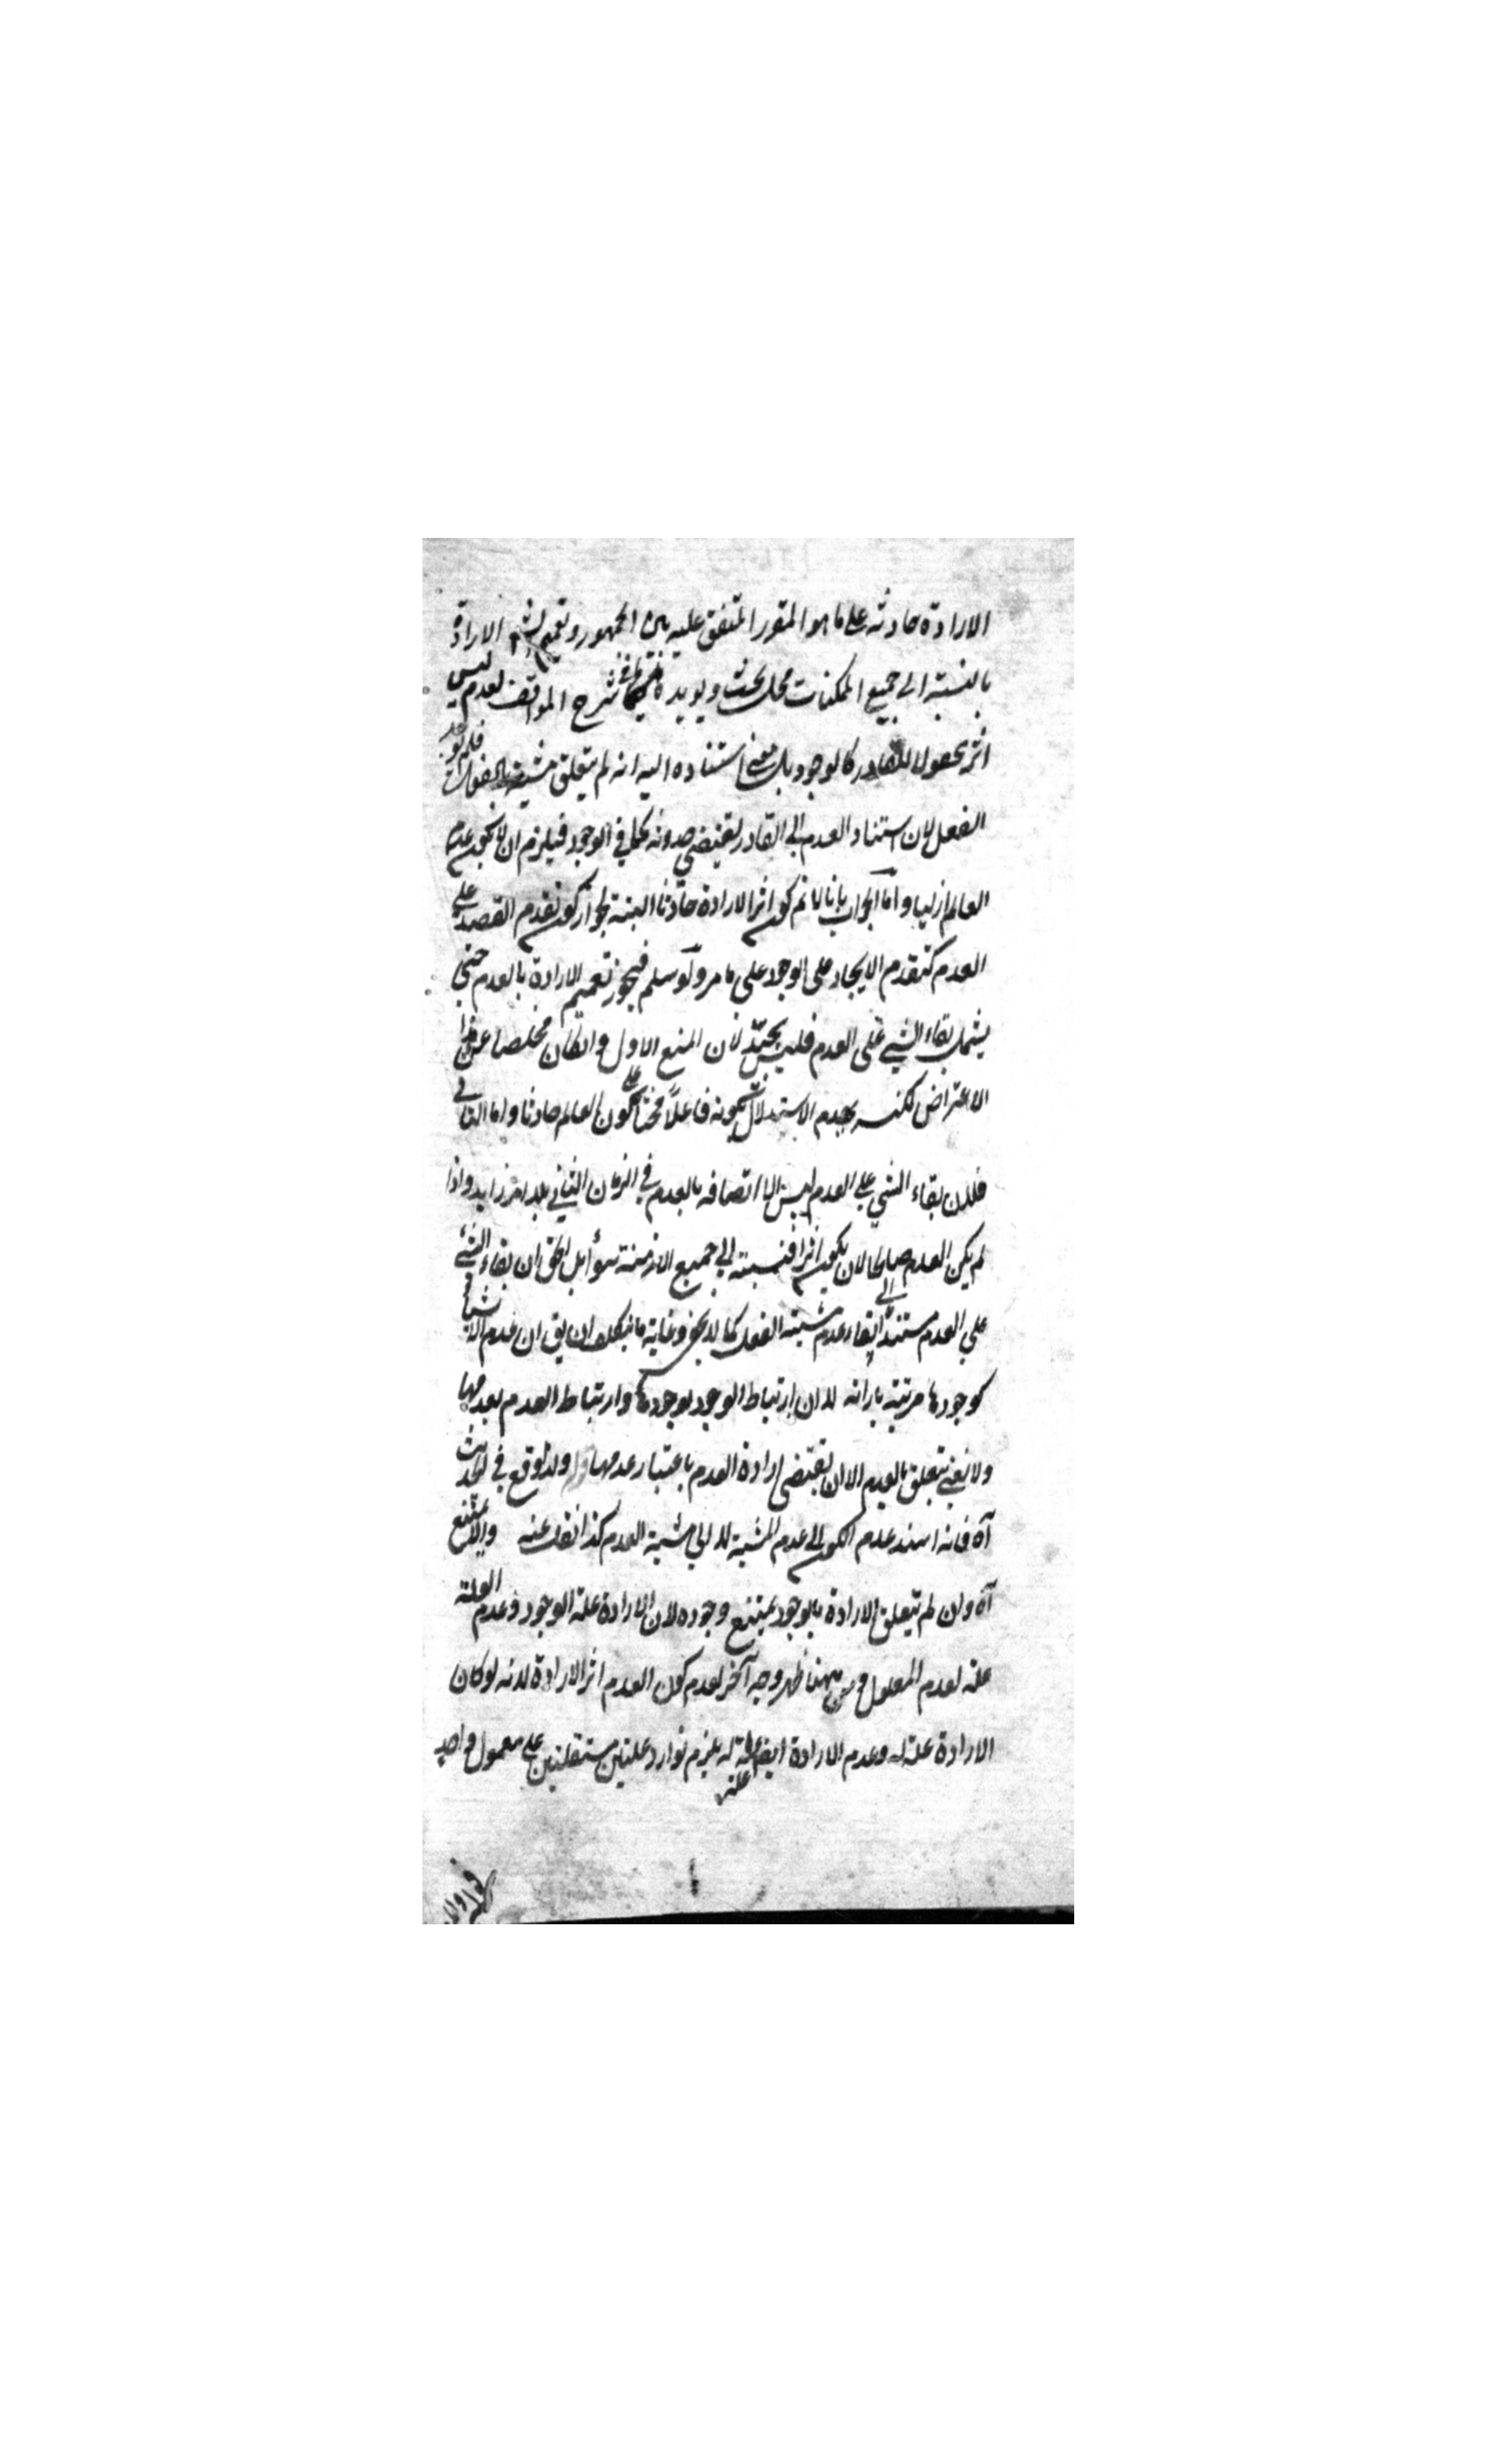 الارادة حادثه على ما هو المقرر المتفق عليه بين الجمهور وتعميم الارادة
بالنسبة الى جميع الممكنات محل بحث ويويده ما في شرح المواقف لعدم ليس
اثر مجعولا للقادر كالوجود بل معنى استناده اليه انه لم يتعلق مشيته بالفعل فلم يوجد
الفعل لان استناد العدم الى القادر يقتضي حدوثه كما في الوجود فيلزم ان لا يكون عدم
العالم ازليا واما الجواب بانا لا نم كون اثر الارادة حادثا البتة لجواز كون تقدم القصد على
العدم كتقدم الايجاد على الوجود على ما مر ولو سلم فيجوز تعميم الارادة بالعدم حتى
يشمل بقاء الشي على العدم فليس بجيد لان المنع الاول وانكان مخلصا عن هذا
الاعتراض لكنه يهدم الاستدلال بكونه فاعلا مختارا على كون العالم حادثا واما الثاني
فلان بقاء الشي على العدم ليس الا اتصافه بالعدم في الزمان الثاني بلا امر زايد واذا
لم يكن العدم صالحا لان يكون اثرا فنسبته الى جميع الازمنة سواء بل الحق ان بقاء الشئ
على العدم مستند الى بقاء عدم مشية الفعل كما لا يخفى وغاية ما يتكلف ان يق ان عدم الاشياء
كوجودها مرتبة بارادته لا ان ارتباط الوجود بوجودها وارتباط العدم بعدمها
ولا نعني بتعلق بالعدم الا ان يقتضي ارادة العدم باعتبار عدمها ولذا وقع في الحديث
آه فانه اسند عدم الكون الى عدم المشية لا الى مشية العدم كذا نقل عنه والا يمتنع
آه وان لم يتعلق الارادة بالوجود يمتنع وجوده لان الارادة علة الوجود وعدم العلة
علة لعدم المعلول ومن ههنا ظهر وجه آخر لعدم كون العدم اثر الارادة لانه لو كان
الارادة علة له وعدم الارادة ايضا علة له يلزم توارد علتين مستقلتين على معمول واحد
علة